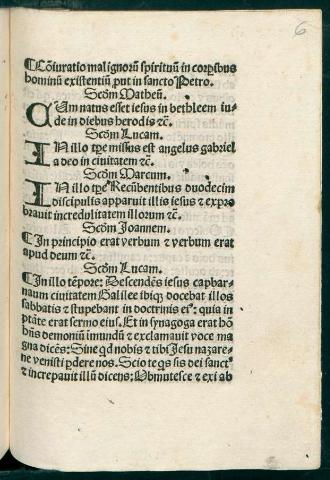 6
¶Cōiuratio malignorū spirituū in corꝑibus
hominū existentiū put in sancto Petro.
Scdm̄ Matheū.
CUm natus esset iesus in bethleem iu-
de in diebus herodis ⁊c̄.
Scdm̄ Lucam.
IN illo tp̄e missus est angelus gabriel
a deo in ciuitatem ⁊c̄.
Scdm̄ Marcum.
IN illo tp̄e Recūbentibus duodecim
discipulis apparuit illis iesus ⁊ expro
brauit incredulitatem illorum ⁊c̄.
Scdm̄ Joannem.
¶In principio erat verbum ⁊ verbum erat
apud deum ⁊c̄.
Scdm̄ Lucam.
¶In illo tēpore: Descendēs iesus caphar-
naum ciuitatem Galilee ibiqꝫ docebat illos
sabbatis ⁊ stupebant in doctrinis eiꝰ: quia in
ptāte erat sermo eius. Et in synagoga erat hō
hn̄s demoniū inmundū ⁊ exclamauit voce ma
gna dicēs: Sine qd nobis ⁊ tibi Jesu nazare-
ne venisti ꝑdere nos. Scio te qs sis dei sanctꝰ
⁊ increpauit illū dicens: Obmutesce ⁊ exi ab